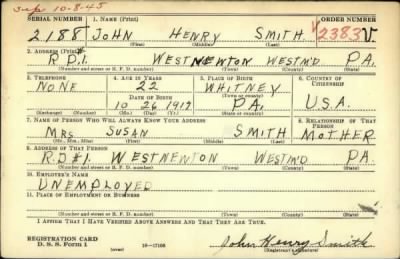 Sup 10-8-45
SERIAL NUMBER 1. NAME (Print) ORDER NUMBER
2188 JOHN HENRY SMITH V2383V
(First) (Middle) (Last)
2. ADDRESS (Print)
R D 1. WESTNEWTON WESTM'D PA.
(Number and street or R. F. D. number) (Town) (County) (State)
3. TELEPHONE 4. AGE IN YEARS 5. PLACE OF BIRTH 6. COUNTRY OF CITIZENSHIP
NONE 22 WHITNEY
(Town or county)
DATE OF BIRTH
10 26 1917 PA. U.S.A.
(Exchange) (Number) (Mo.) (Day) (Yr.) (State or country)
7. NAME OF PERSON WHO WILL ALWAYS KNOW YOUR ADDRESS 8. RELATIONSHIP OF THAT PERSON
MRS SUSAN SMITH MOTHER
(Mr., Mrs., Miss) (First) (Middle) (Last)
9. ADDRESS OF THAT PERSON
R.D#1. WESTNEWTON WESTM'D PA.
(Number and street or R. F. D. number) (Town) (County) (State)
10. EMPLOYER'S NAME
UNEMPLOYED
11. PLACE OF EMPLOYMENT OR BUSINESS
(Number and street or R. F. D. number) (Town) (County) (State)
I AFFIRM THAT I HAVE VERIFIED ABOVE ANSWERS AND THAT THEY ARE TRUE.
REGISTRATION CARD
D. S. S. Form 1 (over) 16-17105 John Henry Smith
(Registrant's signature)